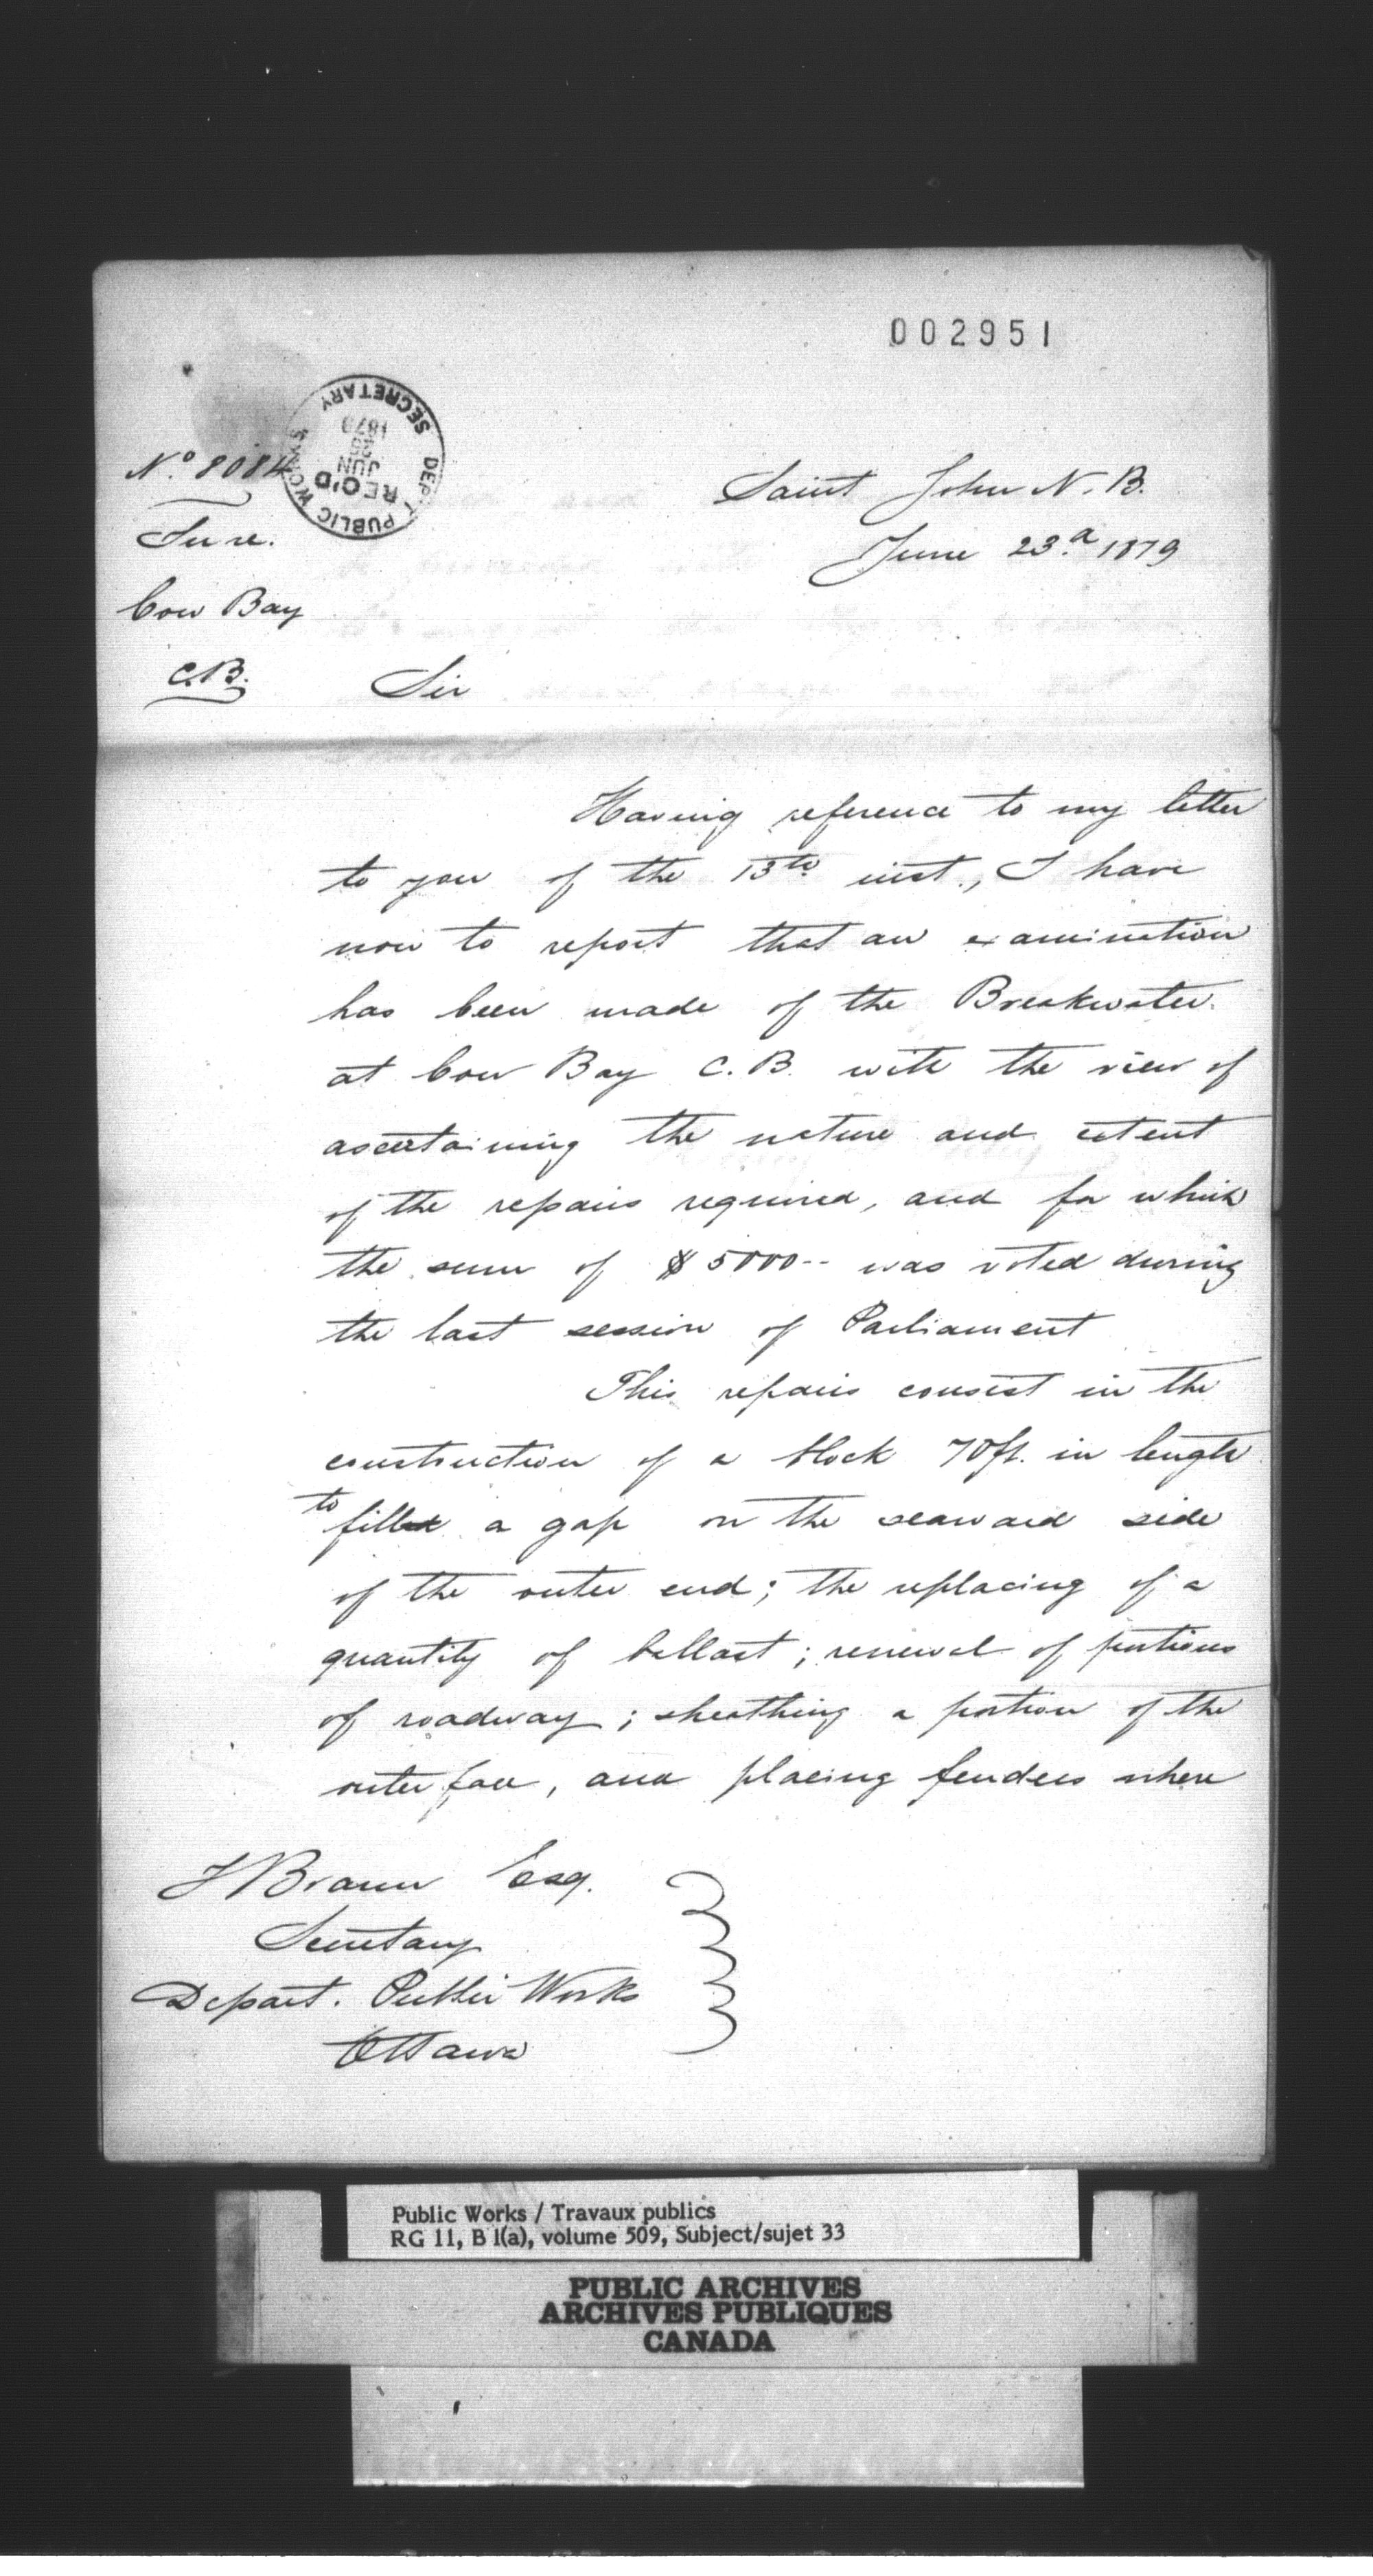 002951
SECRETARY
DEPT. PUBLIC WORKS
REC'D
JUN
1879
No. 8084
Saint John N. B.
June 23d. 1879
In re.
Cow Bay
C.B.
Sir
Having reference to my letter
to you of the 13th inst., I have
now to report that an examination
has been made of the Breakwater
at Cow Bay C. B. with the view of
ascertaining the nature and extent
of the repairs required, and for which
the sum of $5000-- was voted during
the last session of Parliament
This repairs consist in the
construction of a block 70ft. in length
to filled a gap on the seaward side
of the outer end; the replacing of a
quantity of ballast; renewal of portions
of roadway; sheathing a portion of the
outer face, and placing fenders where
F Braun Esq.
Secretary
Depart. Public Works
Ottawa
Public Works / Travaux publics
RG 11, B 1(a), volume 509, Subject/sujet 33
PUBLIC ARCHIVES
ARCHIVES PUBLIQUES
CANADA